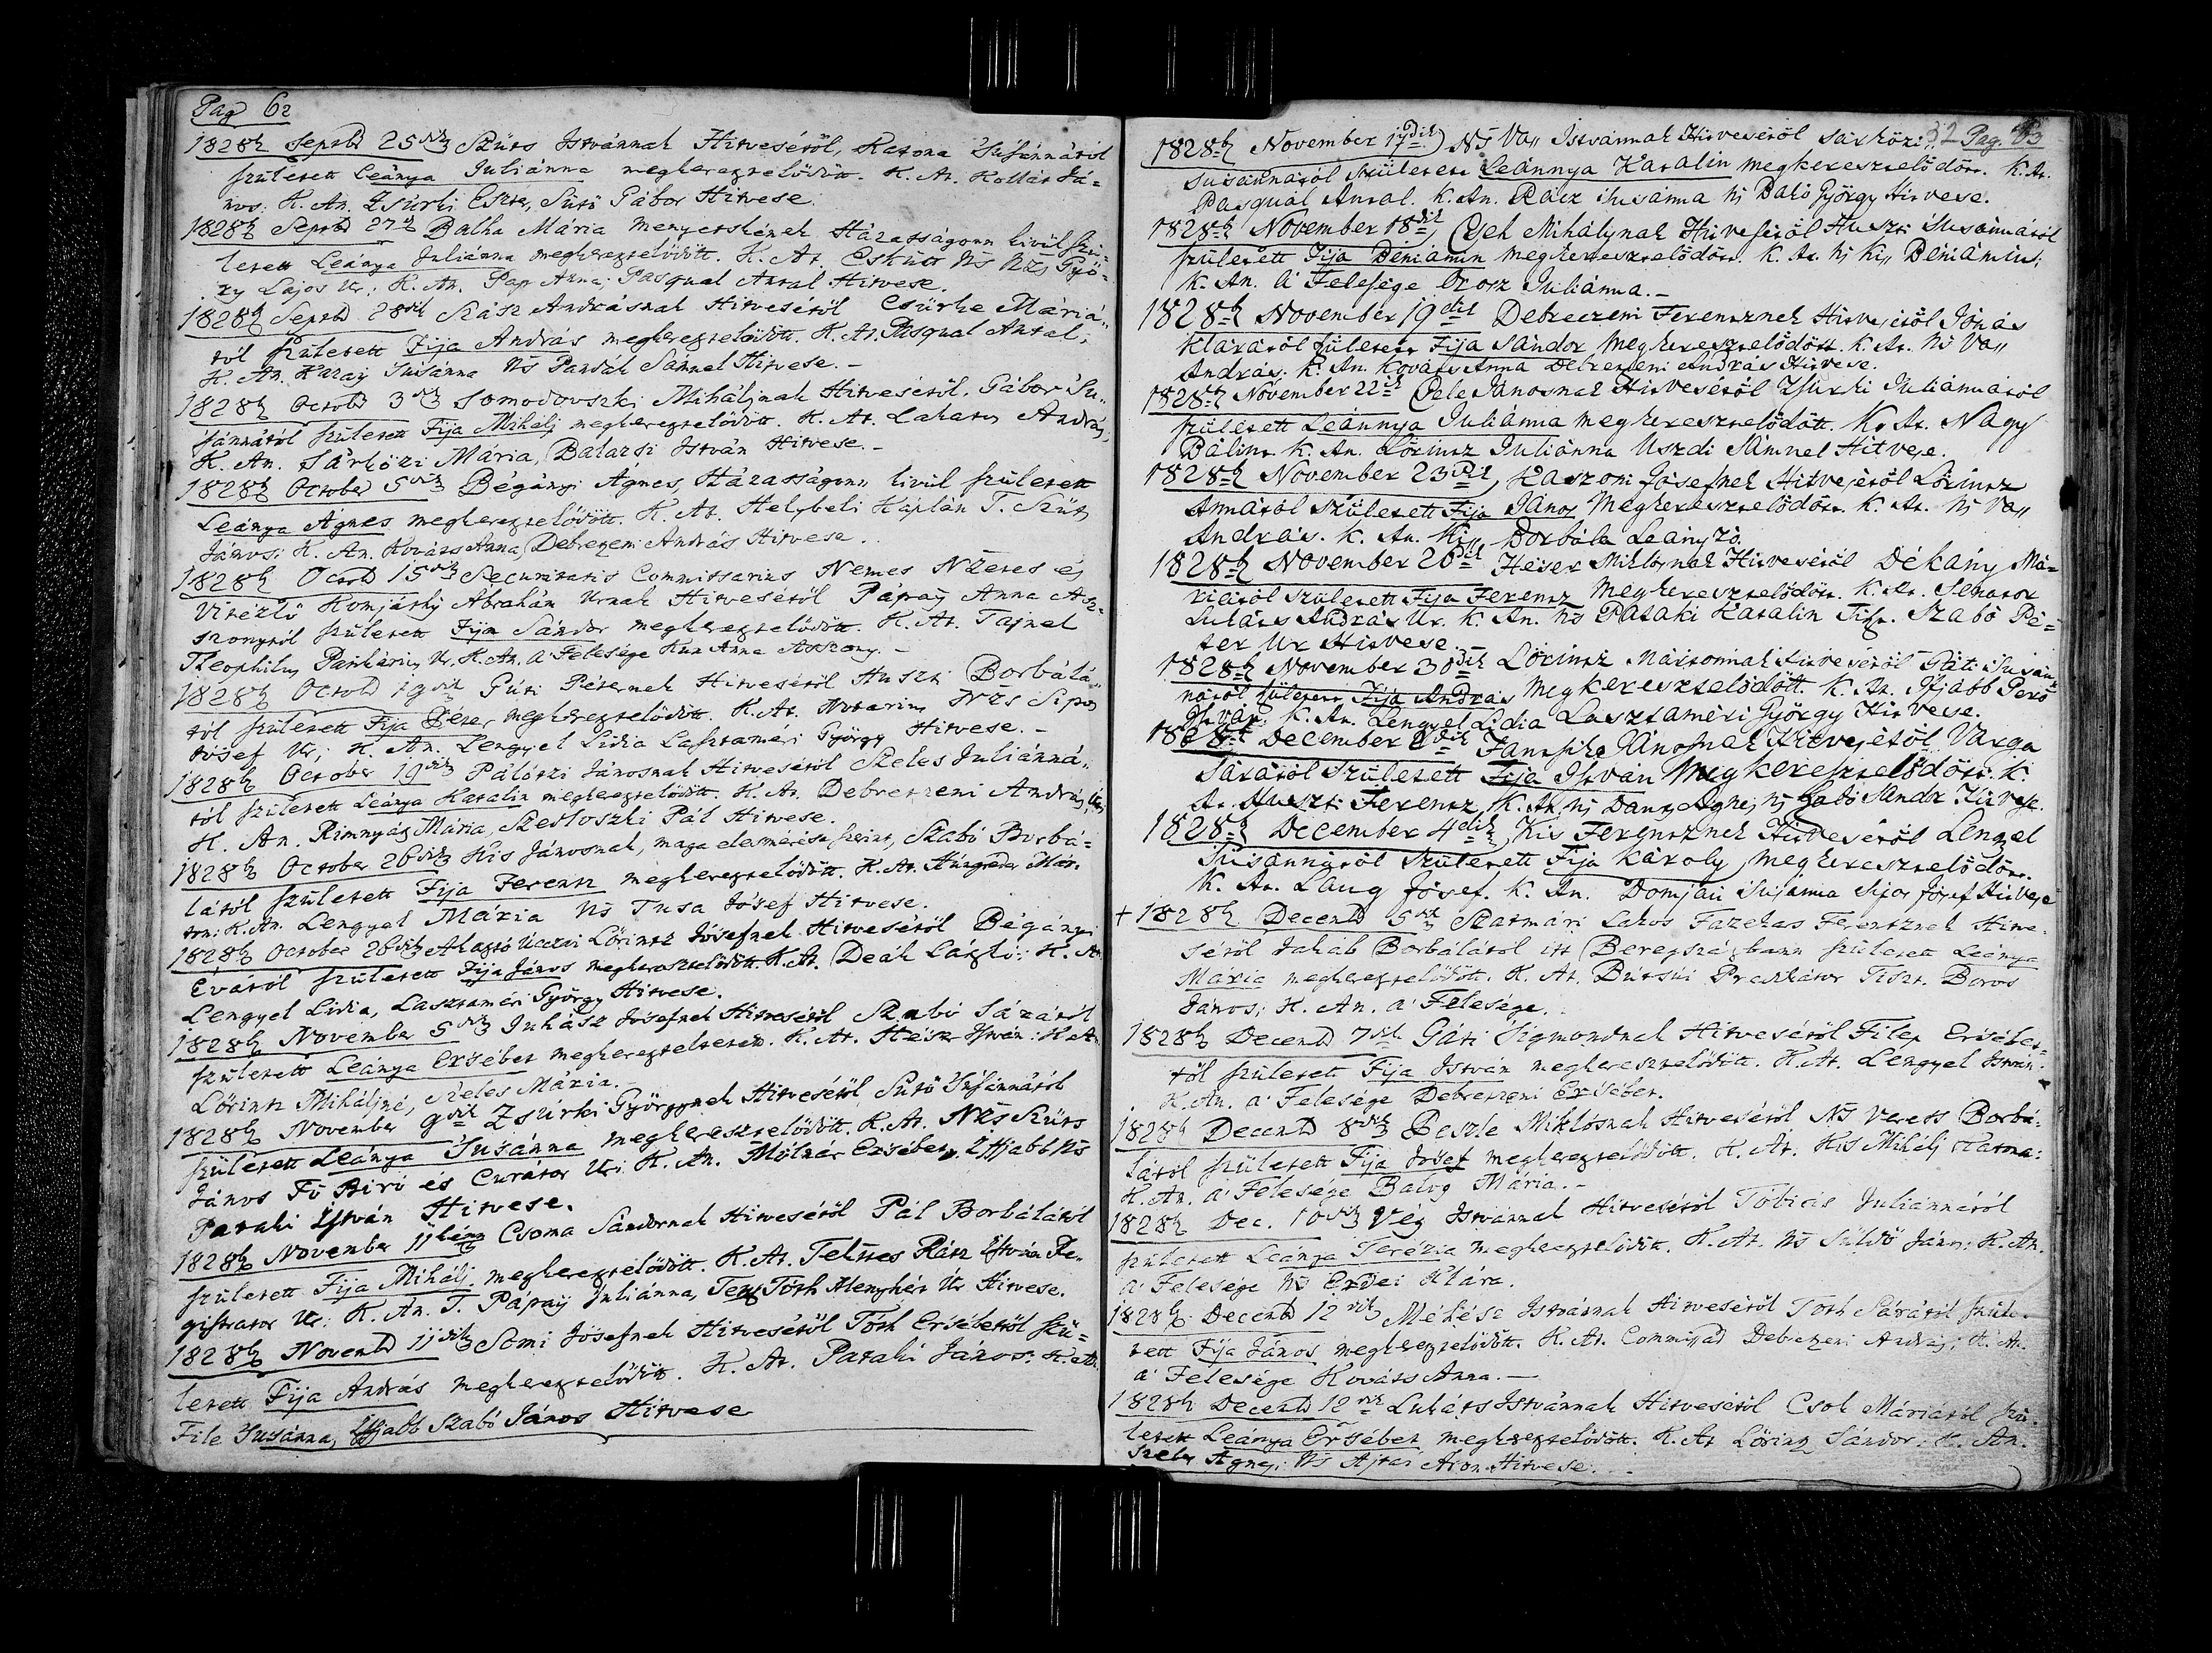 Pag 62
1828b Septb 25dik Szüts Istvánnak Hitvesétöl, Katona 'Susánnátol
született Leánya Juliánna megkereszteltödött. K. At. Kollát Já=
nos: K. An. Zsurki Eszter, Sütö Gábor Hitvese.
1828b Septb 27ik Balha Mária Menyetskének Házasságonn kivül szü=
letett Leánya Juliánna megkereszteltödött. K. At. Eskütt Ns Nzs Györ=
gy Lajos Ur; K. An. Pap Anna, Pasqual Antal Hitvese.
1828b Septb 28dik Szász Andrásnak Hitvesétöl Csürke Máriá„
tól született Fija András megkereszteltödött. K. At. Pasqual Antal;
K. An. Kazay Susánna Ns Pandák Sámuel Hitvese.-
1828b Octob 3dik Somodovszki Miháljnak Hitvesétöl, Gábor 'Su„
sánnától született Fija Mihálj megkereszteltödött. K. At. Lakatos András,
K. An. Sárközi Mária, Balazsi István Hitvese.-
1828b October 5dik Bégányi Ágnes, Házasságonn kivül született
Leánya Ágnes megkereszteltödött. K. At. Helybeli Káplán T. Szüts
János: K. An. Kováts Anna, Debretzeni András Hitvese.
1828b Octob 15dik Securitatis Commissarius Nemes Nzetes és
Vitézlö Komjáthy Ábrahám Urnak Hitvesétöl Pápay Anna Asz=
szonytól született Fija Sándor megkereszteltödött. K. At. Tajnel
Theophilus Patikárius Ur, K. An. a' Felesége Kun Anna Asszony.-
1828b Octob 19dik Gúti Péternek Hitvesétöl Huszti Borbálá„
tól született Fija Péter megkereszteltödött. K. At. Notarius Nzs Sipos
Jósef Ur; K. An. Lengyel Lidia Lasztaméri György Hitvese.-
1828b October 19dik Pálótzi Jánosnak Hitvesétöl Szeles Juliánná„
tól született Leánya Katalin megkereszteltödött. K. At. Debretzeni András
K. An. Rimnyáz Mária, Szestoszki Pál Hitvese.
1828b October 26dik Kis Jánosnak, maga elesmérése szerint, Szabó Borbá=
látol született Fija Ferentz megkereszteltödött. K. At. Hungrader Már„
ton: K. An. Lengyel Mária Ns Tusa Jósef Hitvese.
1828b October 26dik Alagzó Utzai Lörintz Jósefnek Hitvesétöl Bégányi
Évától született Fija János megkereszteltödött. K. At. Deák László: K. An.
Lengyel Lidia, Lasztaméri György Hitvese.
1828b November 5dik Juhász Jósefnek Hitvesétöl Szabó Sárától
született Leánya Ersébet megkereszteltetett. K. At. Héser István: K. An.
Lörintz Miháljné, Szeles Mária.
1828b November 9dik Zsúrki Györgynek Hitvesétöl Sütö 'Su'sánnátol
született Leánya 'Susánna megkereszteltödött. K. At. Nzs Szüts
János Fö Biró és Curátor Ur: K. An. Mólnár Ersébet, Ifjabb Ns
Pataki István Hitvese.
1828b November 11kénn Csoma Sándornak Hitvesétöl Pál Borbálátol
született Fija Mihálj megkereszteltödött. K. At. Tettes Rátz István Re„
gistrator Ur: K. An. T. Pápay Juliánna, Tens Tóth Menyhért Ur Hitvese.
1828b Novemb 11dik Somi Jósefnek Hitvesétöl Tóth Ersébettöl szü=
letett Fija András megkereszteltödött. K. At. Pataki János: K. An.
File 'Susánna, Ifjabb Szabó János Hitvese
32 Pag. 63
1828-b November 17dik Ns Vas Istvánnak Hitvesétöl Sárközi
Susannátol született Leánnya Katalin megkereszteltödött. K. At.
Pasqual Antal. K. An. Rácz Susánna Ns Baló György Hitvese.
1828-b November 18dik Cseh Mihálynak Hitvesétöl Huszti Susánnátol
született Fija Béniámin megkereszteltödött. K. At. Ns Kiss Béniámint.
K. An. a' Felesége Orosz Juliánna.-
1828-b November 19dik Debreczeni Ferencznek Hitvesétöl Jónás
Klárától született Fija Sándor megkereszteltödött. K. At. Ns Vass
András. K. An. Kováts Anna Debretzeni András Hitvese.
1828-b November 22ik Cele Jánosnak Hitvesétöl Zsurki Juliánnátol
született Leánnya Juliánna megkereszteltödött. K. At. Nagy
Bálint. K. An. Lörincz Juliánna Uszdi Sámuel Hitvese.
1828-b November 23dik Kaszoni Jósefnek Hitvesétöl Lörincz
Annától született Fija János megkereszteltödött. K. At. Ns Vass
András. K. An. Kiss Borbála Leányzó.
1828-b November 26dik Héser Miklósnak Hitvesétöl Dékány Má=
riától született Fija Ferencz megkereszteltödött. K. At. Senator
Lukáts András Ur. K. An. Ns Pataki Katalin Titzt. Szabó Pé=
ter Ur Hitvese.-
1828-b November 30dik Lörincz Mártonnak Hitvesétöl Gáti Susán=
nától született Fija András megkereszteltödött. K. At. Ifjabb Petö
István. K. An. Lengyel Lidia Lasztaméri György Hitvese.
1828-b December 2dik Fantsika Jánosnak Hitvesétöl Varga
Sárától született Fija István megkereszteltödött. K.
At. Huszti Ferencz, K. An. Ns Dancs Ágnes Ns Szabó Sándor Hitvese.
1828-b December 4dik Kis Ferencznek Hitvesétöl Lengyel
Susannától született Fija Károly megkereszteltödött.
K. At. Laug Jósef. K. An. Domján Susánna Sipos Jósef Hitvese
+ 1828b Decemb 5dik Szatmári Lakos Fazekas Ferentznek Hitve„
sétöl Jakab Borbálától itt Beregszászbann született Leánya
Mária megkereszteltödött. K. At. Bútsúi Predikátor Tiszt. Boros
János; K. An. a' Felesége.
1828b Decemb 7dik Gáti Sigmondnak Hitvesétöl Filep Ersébet=
töl született Fija István megkereszteltödött. K. At. Lengyel István.
K. An. a' Felesége Debretzeni Ersébet.
1828b Decemb 8dik Beszle Miklósnak Hitvesétöl Ns Veress Borbá„
látol született Fija Jósef megkereszteltödött. K. At. Kis Mihálj Katona:
K. An. a' Felesége Balog Mária.-
1828b Dec. 10dik Vég Istvánnak Hitvesétöl Tóbiás Juliánnától
született Leánya Terézia megkereszteltödött. K. At. Ns Süldö János: K. An.
a' Felesége Ns Erdei Klára.
1828b Decemb 12dik Mékése Istvánnak Hitvesétöl Tóth Sárátol szüle„
tett Fija János megkereszteltödött. K. At. Debretzeni András; K. An.
a' Felesége Kováts Anna.-
1828b Decemb 12dik Lukáts Istvánnak Hitvesétöl Csok Máriától szü„
letett Leánya Ersébet megkereszteltödött. K. At Lörintz Sándor: K. An.
Szeles Ágnes: Ns Ajtai Áron Hitvese.-